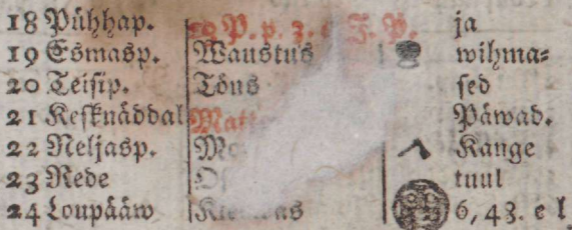 18 Pühhap. P. p. 3. J. P. ja
19 Esmasp. Waustus wihma=
20 Teisip. Töns sed
21 Keſknäddal Päwad.
22 Neljasp. Kange
23 Rede tuul
24 Loupääw 6, 43. e l